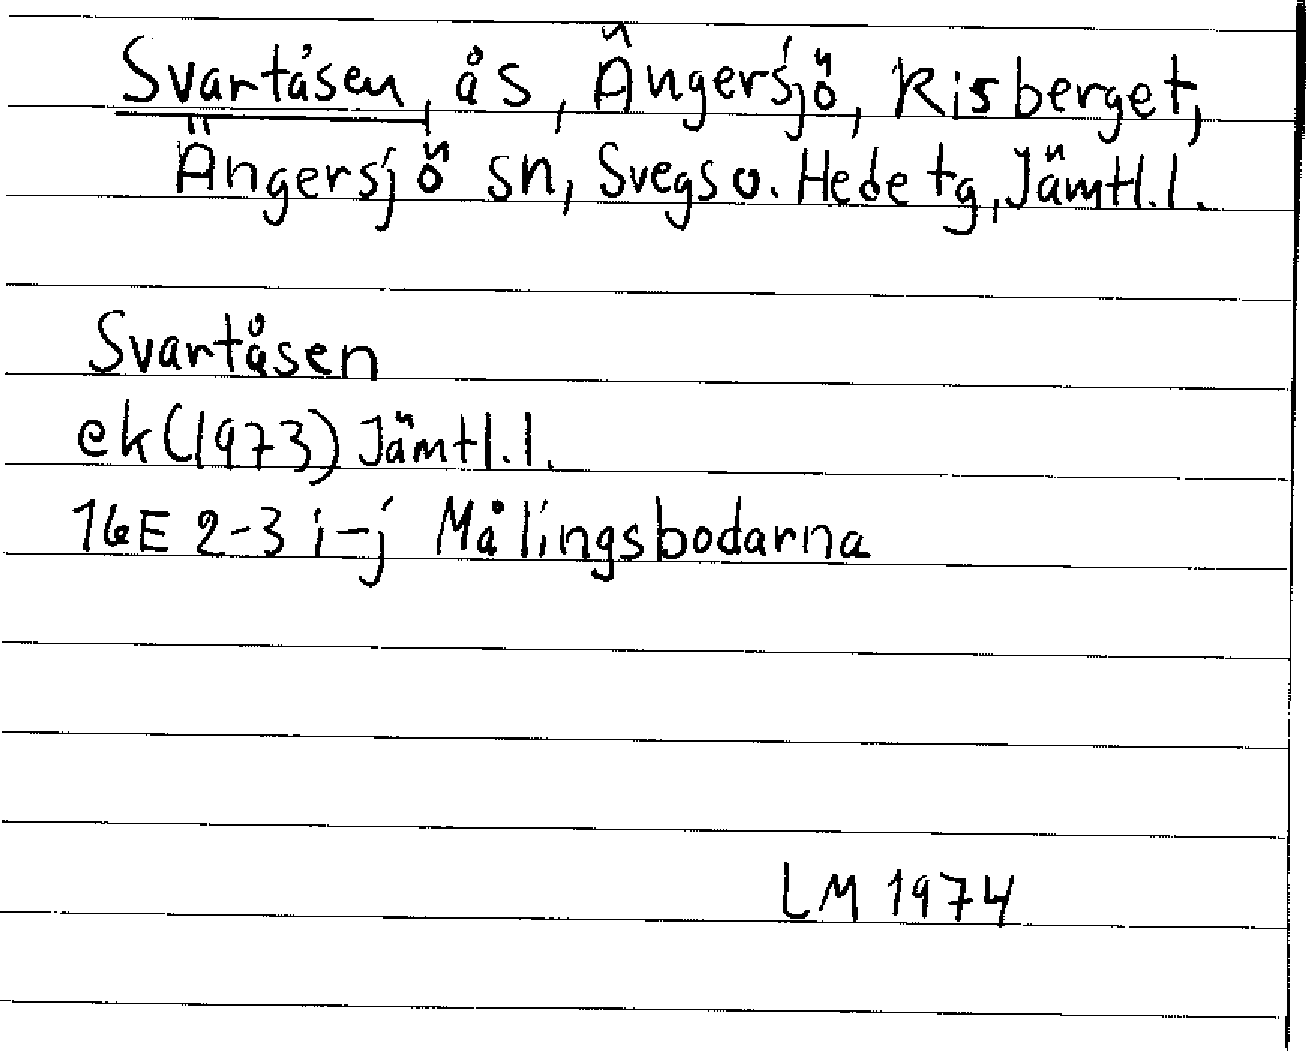 Svartåsen, ås, Ängersjö, Risberget,
Ängersjö sn, Svegs o. Hede tg, Jämtl. l.
Svartåsen
ek (1973) Jämtl. l.
16E 2-3 i-j Målingsbodarna
LM 1974